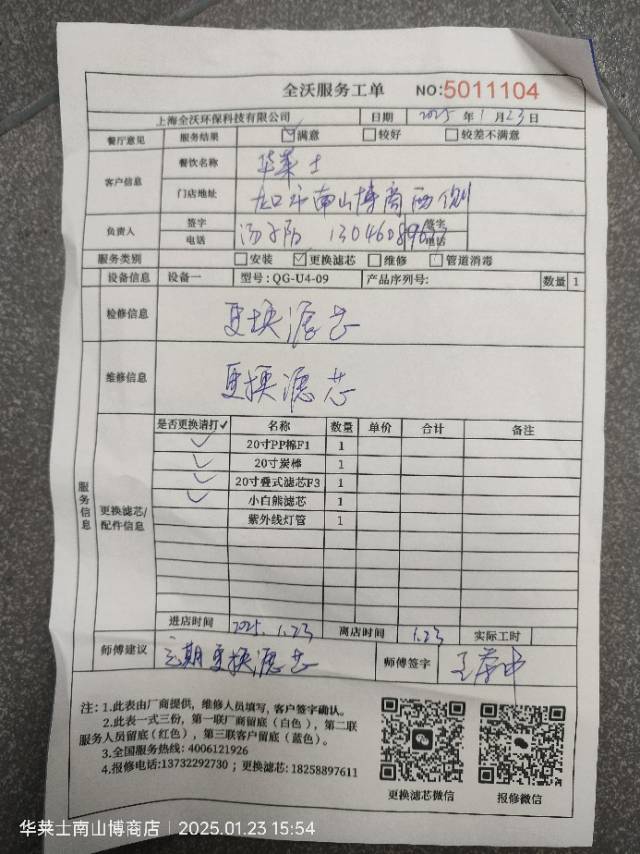 全沃服务工单 NO:5011104
上海全沃环保科技有限公司 日期 2025年1月23日
餐厅意见 服务结果 ☑满意 □较好 □较差不满意
客户信息 餐饮名称 华莱士
门店地址 龙口市南山博商西侧
负责人 签字 签字
电话 电话
服务类别 □安装 ☑更换滤芯 □维修 □管道消毒
设备信息 设备一 型号:QG-U4-09 产品序列号: 数量 1
检修信息 更换滤芯
维修信息 更换滤芯
服务信息 更换滤芯/配件信息
是否更换请打✓ 名称 数量 单价 合计 备注
✓ 20寸PP棉F1 1
✓ 20寸炭棒 1
✓ 20寸叠式滤芯F3 1
✓ 小白熊滤芯 1
紫外线灯管 1
进店时间 2025.1.23 离店时间 1.23 实际工时
师傅建议 定期更换滤芯 师傅签字
注: 1.此表由厂商提供, 维修人员填写, 客户签字确认。
2.此表一式三份, 第一联厂商留底(白色), 第二联
服务人员留底(红色), 第三联客户留底(蓝色)。
3.全国服务热线: 4006121926
4.报修电话:13732292730; 更换滤芯: 18258897611
更换滤芯微信 报修微信
华莱士南山博商店 | 2025.01.23 15:54